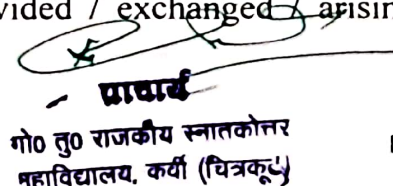 vided / exchanged / arisin
प्राचार्य
गो० तु० राजकीय स्नातकोत्तर
महाविद्यालय, कर्वी (चित्रकूट)